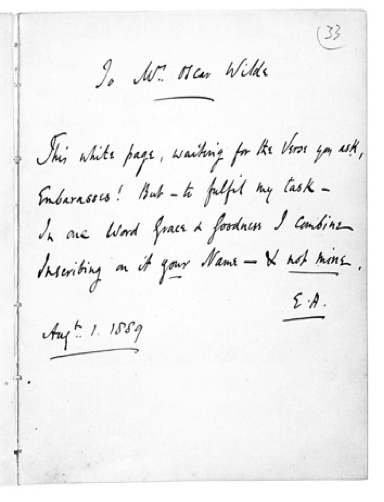 33
To Mrs. Oscar Wilde
This white page, waiting for the Verse you ask,
Embarasses! But – to fulfil my task –
In one Word Grace & Goodness I combine
Inscribing on it your Name – & not mine.
E. A.
Augst. 1. 1889